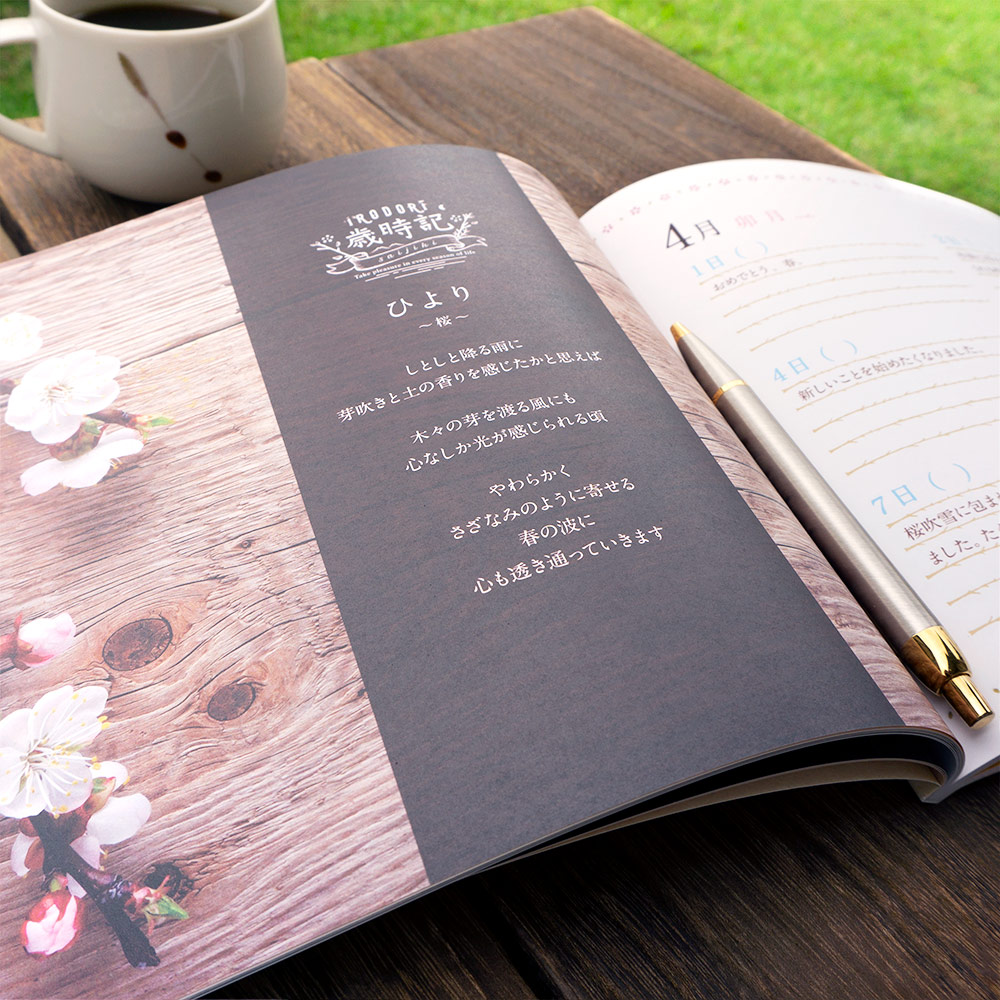 IRODORI
歳時記
saijiki
Take pleasure in every season of life
ひより
～桜～
しとしと降る雨に
芽吹きと土の香りを感じたかと思えば
木々の芽を渡る風にも
心なしか光が感じられる頃
やわらかく
さざなみのように寄せる
春の波に
心も透き通っていきます
4月 卯月
1日（ ）
おめでとう、春。
4日（ ）
新しいことを始めたくなりました。
7日（ ）
桜吹雪に包ま
ました。た